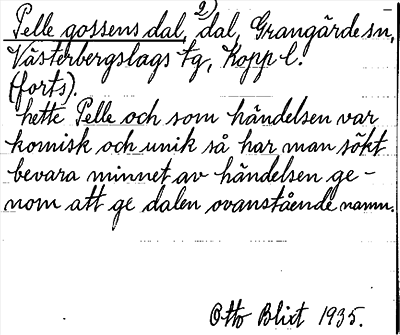 2)
Pelle gossens dal, dal, Grangärde sn,
Västerbergslags tg, Kopp l.
(forts).
hette Pelle och som händelsen var
komisk och unik så har man sökt
bevara minnet av händelsen ge-
nom att ge dalen ovanstående namn.
Otto Blixt 1935.